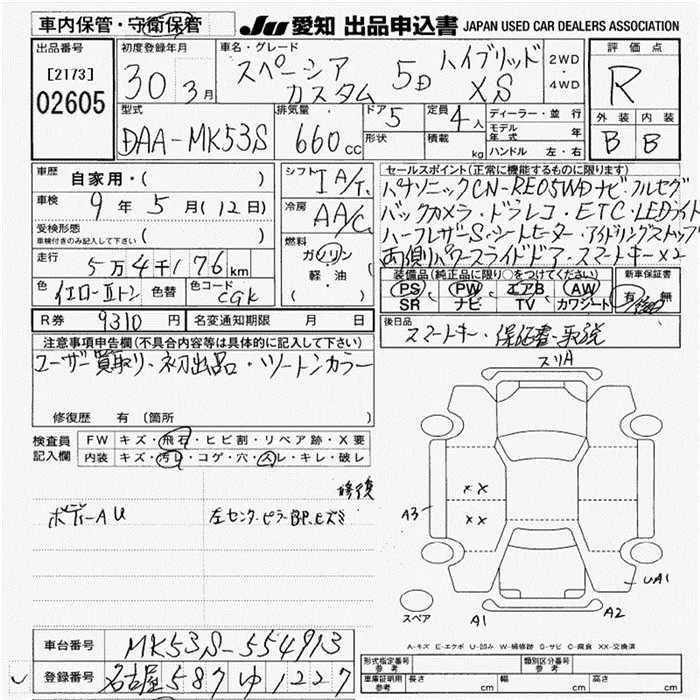 車内保管・守衛保管
JU 愛知 出品申込書 JAPAN USED CAR DEALERS ASSOCIATION
出品番号
[2173]
02605
初度登録年月
30年 3月
車名・グレード
スペーシア カスタム 5D ハイブリッド XS
2WD・4WD
評価点
R
外装 内装
B B
型式
DAA-MK53S
排気量
660cc
ドア 5
形状
定員 4人
積載 kg
ディーラー・並行
モデル年式 年
ハンドル 左・右
車歴 自家用・( )
車検 9年5月(12日)
受検形態
車検付きのみ記入して下さい ( )
走行 5万4千176km
色 イエロー-IIトン 色替 色コード CGK
シフト IA/T
冷房 AA/C
燃料
ガソリン
軽・油
( )
セールスポイント(正常に機能するものに限ります)
パナソニックCN-RE05WDナビ・フルセグ
バックカメラ・ドラレコ・ETC・LEDライト
ハーフレザーS・シートヒーター・アイドリングストップ
両側パワースライドドア・スマートキー×2
装備品(純正品に限り○をつけてください)
PS PW エアB AW
SR ナビ TV カワシート
新車保証書
有・無
R券 9310円 名変通知期限 月 日
後日品
スマートキー・保証書・取説
注意事項申告欄(不具合内容等は具体的に記入して下さい)
ユーザー買取り・初出品・ツートンカラー
修復歴 有(箇所
検査員記入欄
FW キズ・飛石・ヒビ割・リペア跡・X要
内装 キズ・汚れ・コゲ・穴・スレ・キレ・破レ
修復
ボディーAU
左センターピラーBP.ヒズミ
スリA
××
××
A3
UA1
A1
A2
スペア
A-キズ E-エクボ U-凹み W-補修跡 S-サビ C-腐食 XX-交換済
車台番号 MK53S-554913
登録番号 名古屋587ゆ1227
形式指定番号 参考
類別区分番号 参考
車庫証明用 参考
長さ cm 幅 cm 高さ cm